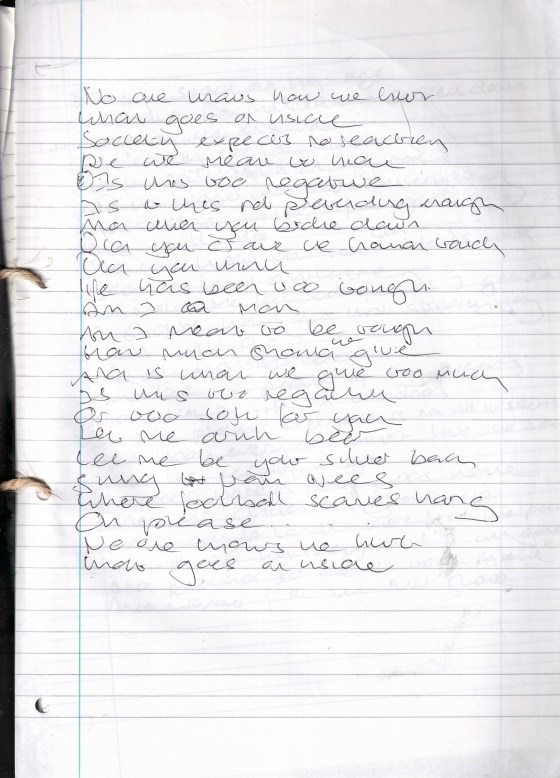 No one knows how we hurt
what goes on inside
Society expects no reaction
Are we meant to hide
Is this too negative
Is this not pretending enough
And when you broke down
Did you crave the human touch
Did you think
life has been too tough
Am I a man
Am I meant to be tough
How much should we give
And is what we give too much
Is this too negative
Or too soft for you
Let me drink beer
Let me be your silver back
Swing from trees
Where football scarves hang
Oh please . . . .
No one knows the hurt
What goes on inside